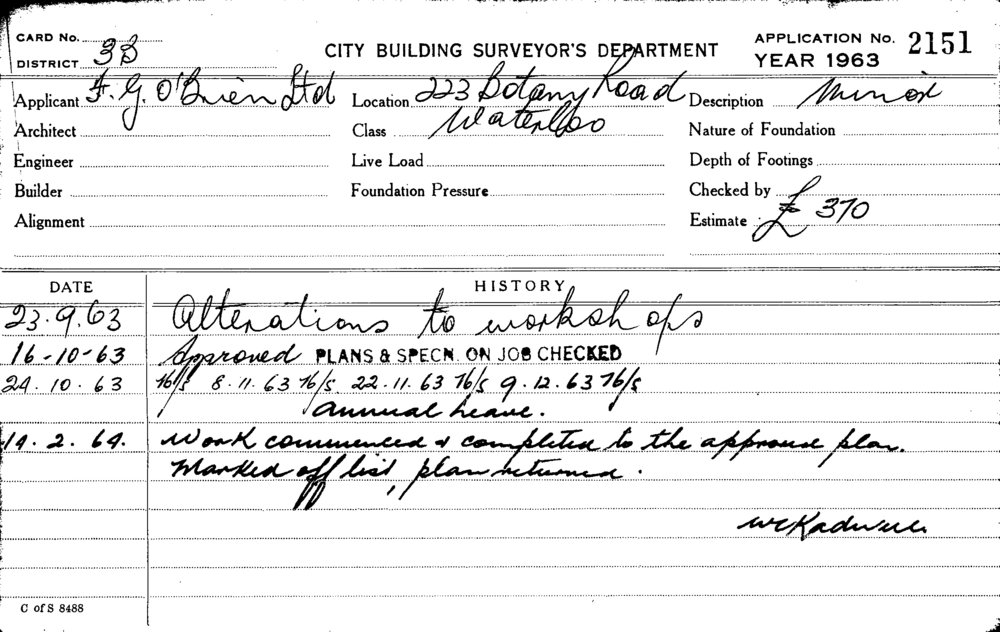 CARD No.
DISTRICT 3B
CITY BUILDING SURVEYOR'S DEPARTMENT
APPLICATION No. 2151
YEAR 1963
Applicant F. G. O'Brien Ltd
Location 223 Botany Road
Waterloo
Description Minor
Architect
Class
Nature of Foundation
Engineer
Live Load
Depth of Footings
Builder
Foundation Pressure
Checked by
Alignment
Estimate £ 370
DATE HISTORY
23.9.63 Alterations to workshops
16-10-63 Approved PLANS & SPECN. ON JOB CHECKED
24.10.63 8.11.63 22.11.63 9.12.63
Annual Leave.
14.2.64. Work commenced & completed to the approved plan.
Marked off list, plan returned.
C of S 8488